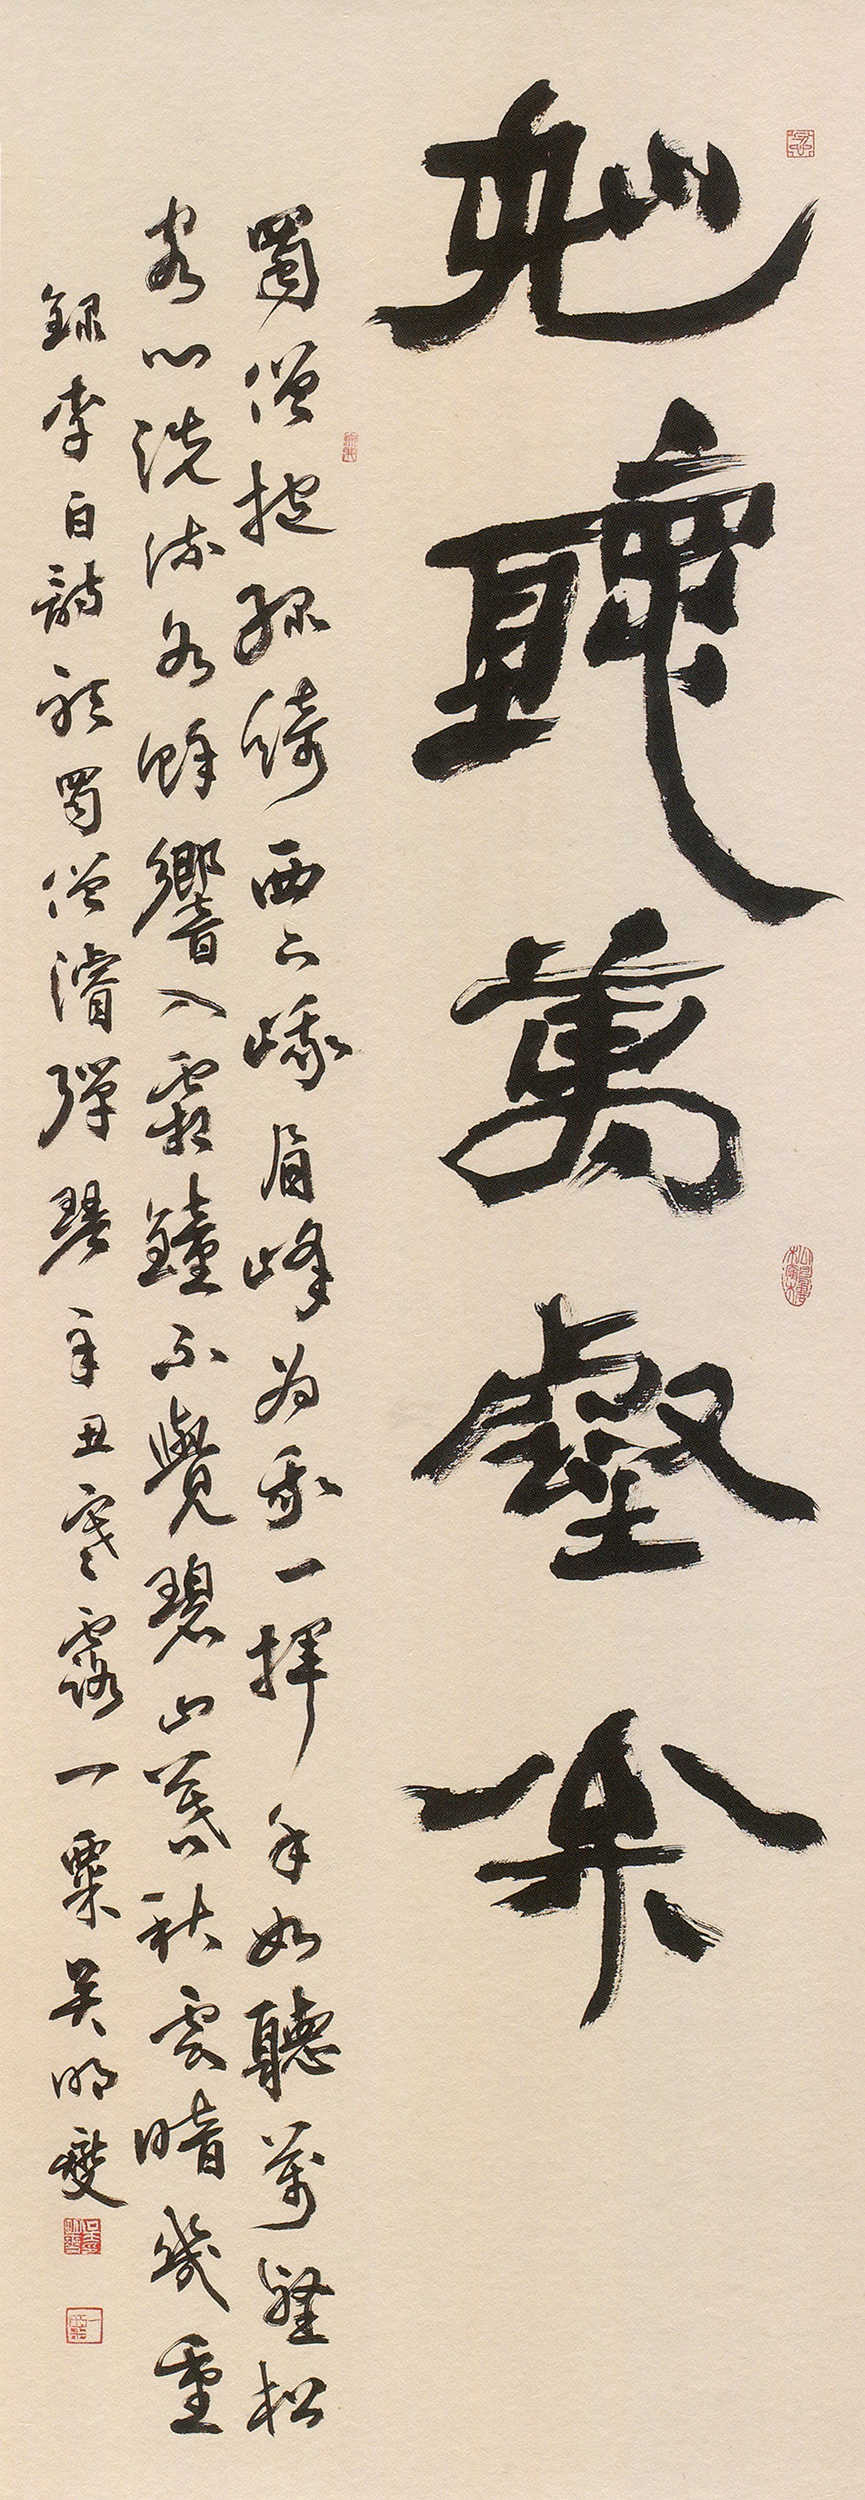 如聽萬壑松
蜀僧抱綠綺西下峨眉峰為我一揮手如聽萬壑松
客心洗流水餘響入霜鐘不覺碧山暮秋雲暗幾重
錄李白詩聽蜀僧濬彈琴辛丑寒露一粟吳明燮